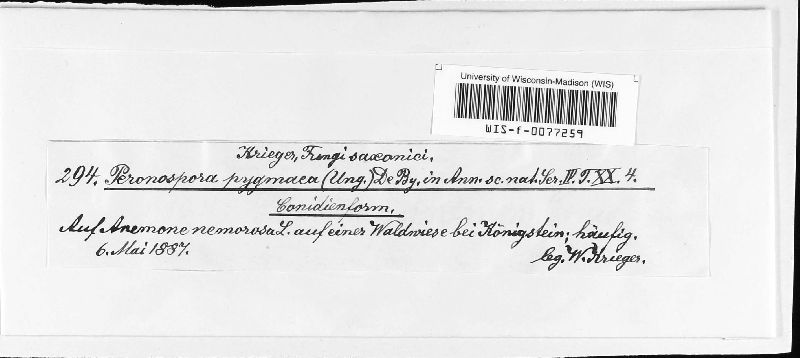 University of Wisconsin-Madison (WIS)
WIS-f-0077259
Krieger, Fungi saxonici.
294. Peronospora pygmaea (Ung.) De By, in Ann. sc. nat. Ser. IV. T. XX. 4.
Conidienform.
Auf Anemone nemorosa L. auf einer Waldwiese bei Königstein; häufig.
6. Mai 1887.
leg. W. Krieger.